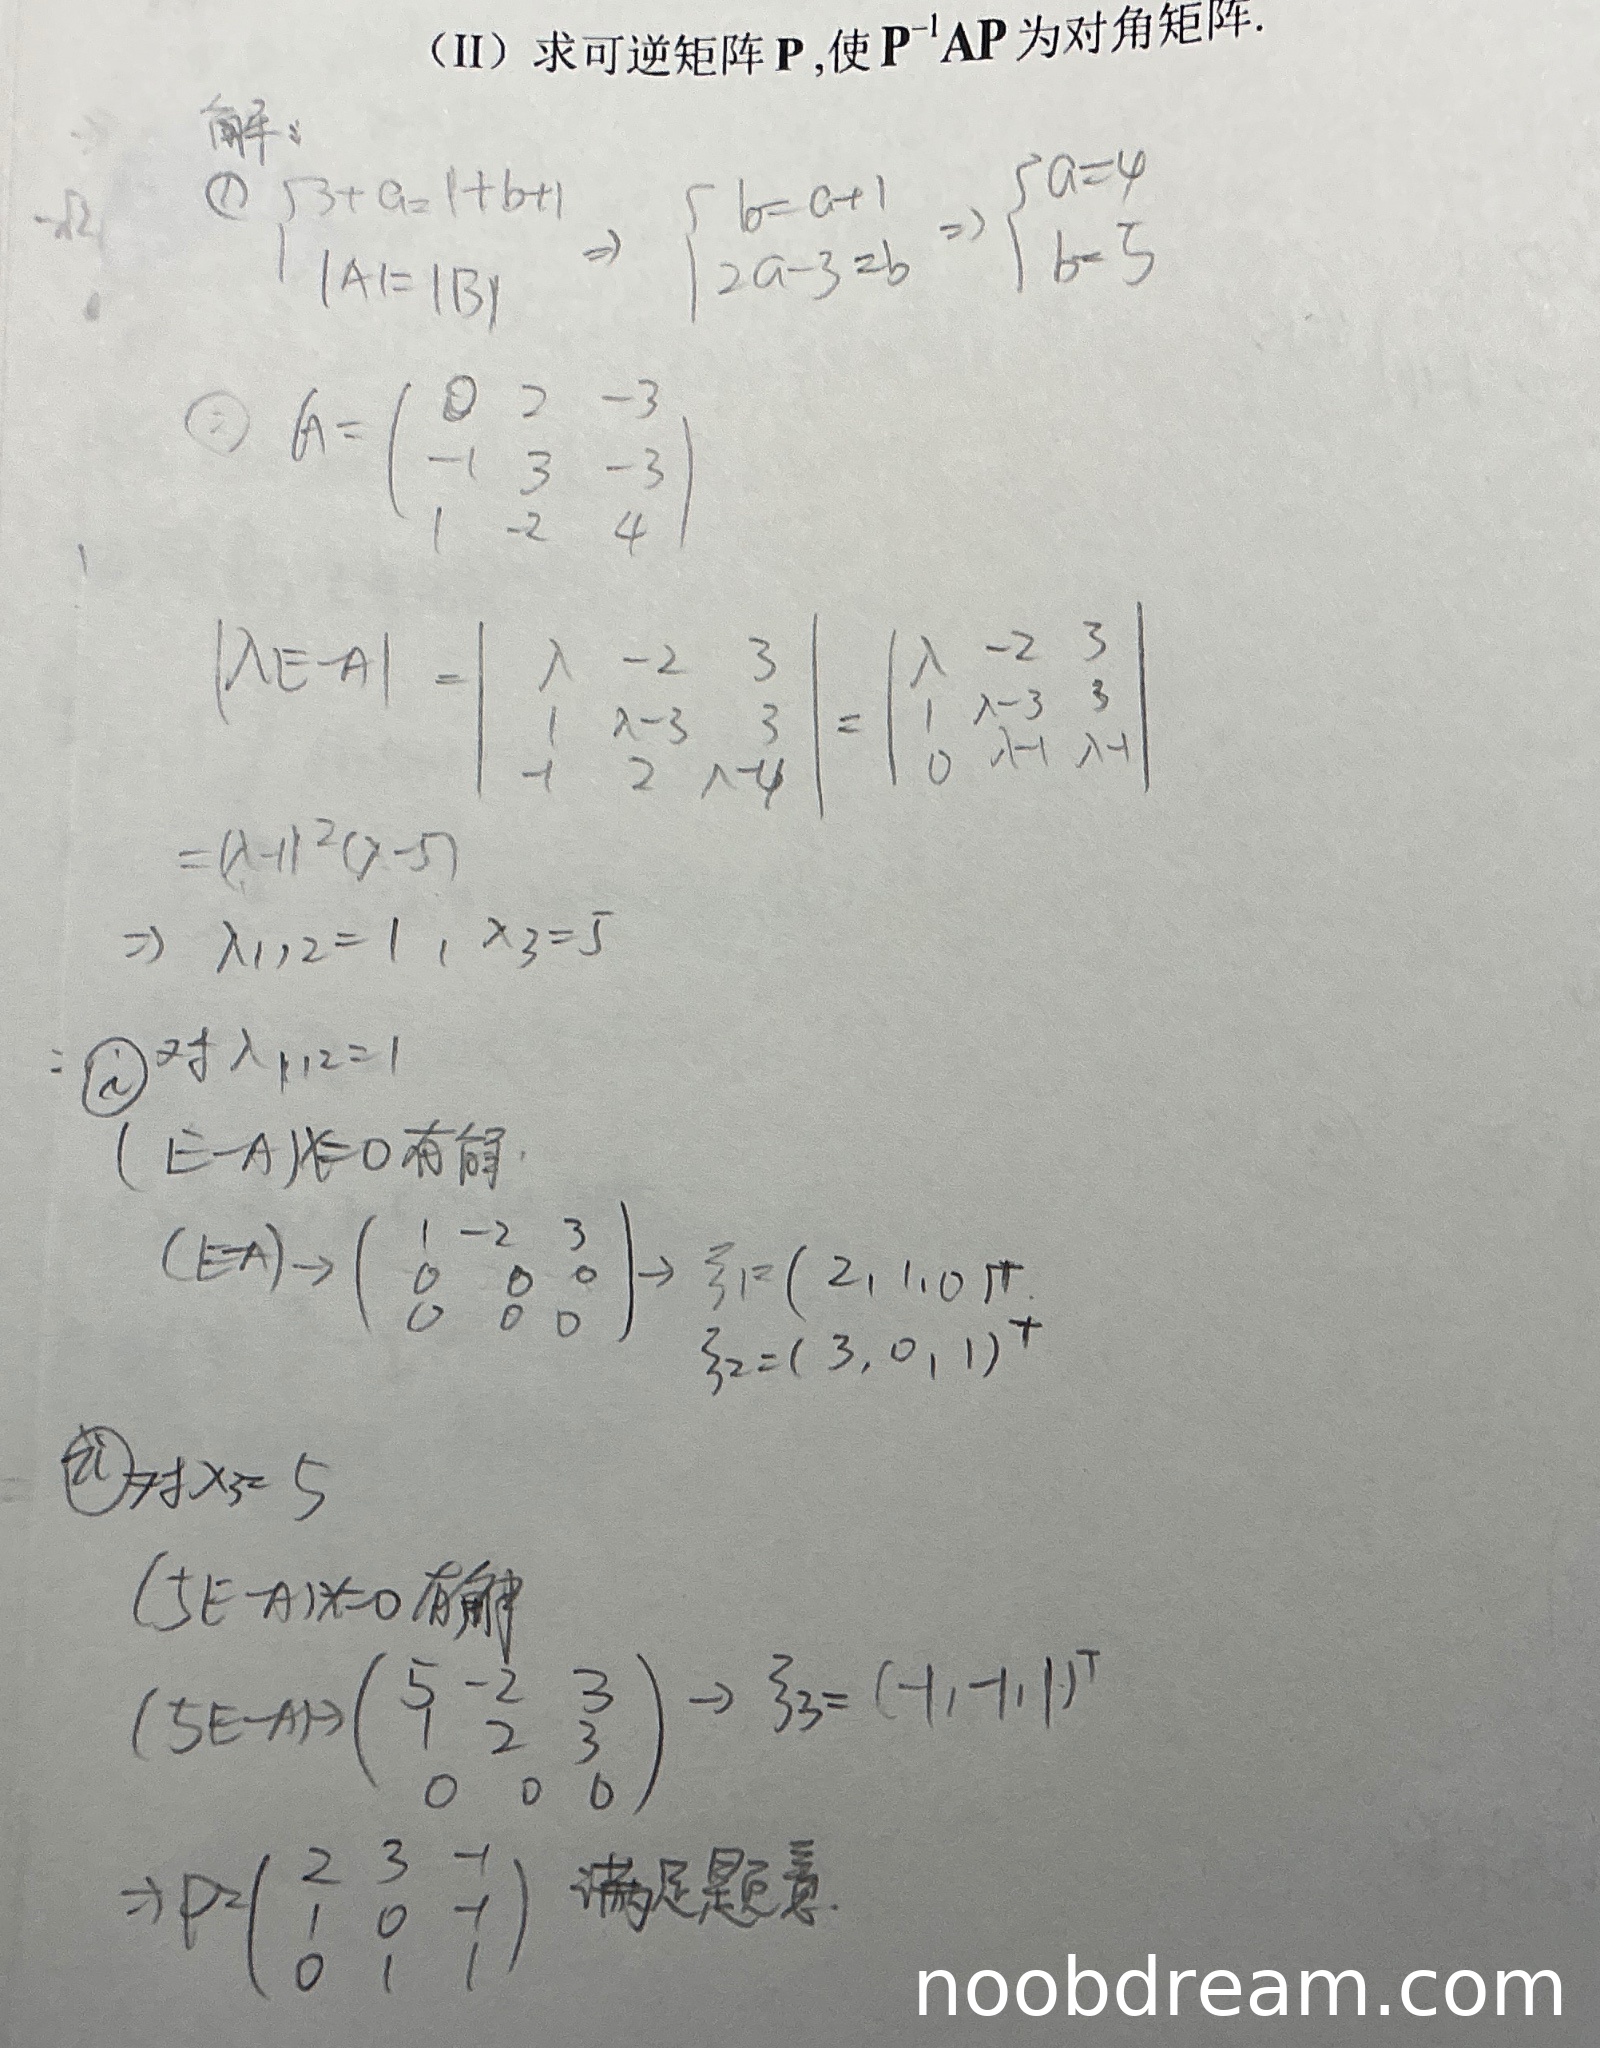 （II）求可逆矩阵 P ,使 P⁻¹AP 为对角矩阵.
解:
① { 3+a=1+b+1 ⇒ { b=a+1 ⇒ { a=4
|A|=|B| 2a-3=b b=5
② A= ( 0 2 -3
-1 3 -3
1 -2 4 )
|λE-A| = | λ -2 3 | = | λ -2 3 |
1 λ-3 3 1 λ-3 3
-1 2 λ-4 0 λ-1 λ-1
=(λ-1)²(λ-5)
⇒ λ1,2=1 , λ3=5
ⓘ 对 λ1,2=1
( E-A)x=0 有解.
(E-A)→ ( 1 -2 3
0 0 0
0 0 0 ) → ξ1=( 2, 1, 0 )T.
ξ2=( 3, 0, 1)T
ⅱ 对 λ3= 5
(5E-A)x=0 有解
(5E-A)→ ( 5 -2 3
1 2 3
0 0 0 ) → ξ3= (-1, -1, 1)T
⇒ P= ( 2 3 -1
1 0 -1
0 1 1 ) 满足题意.
noobdream.com